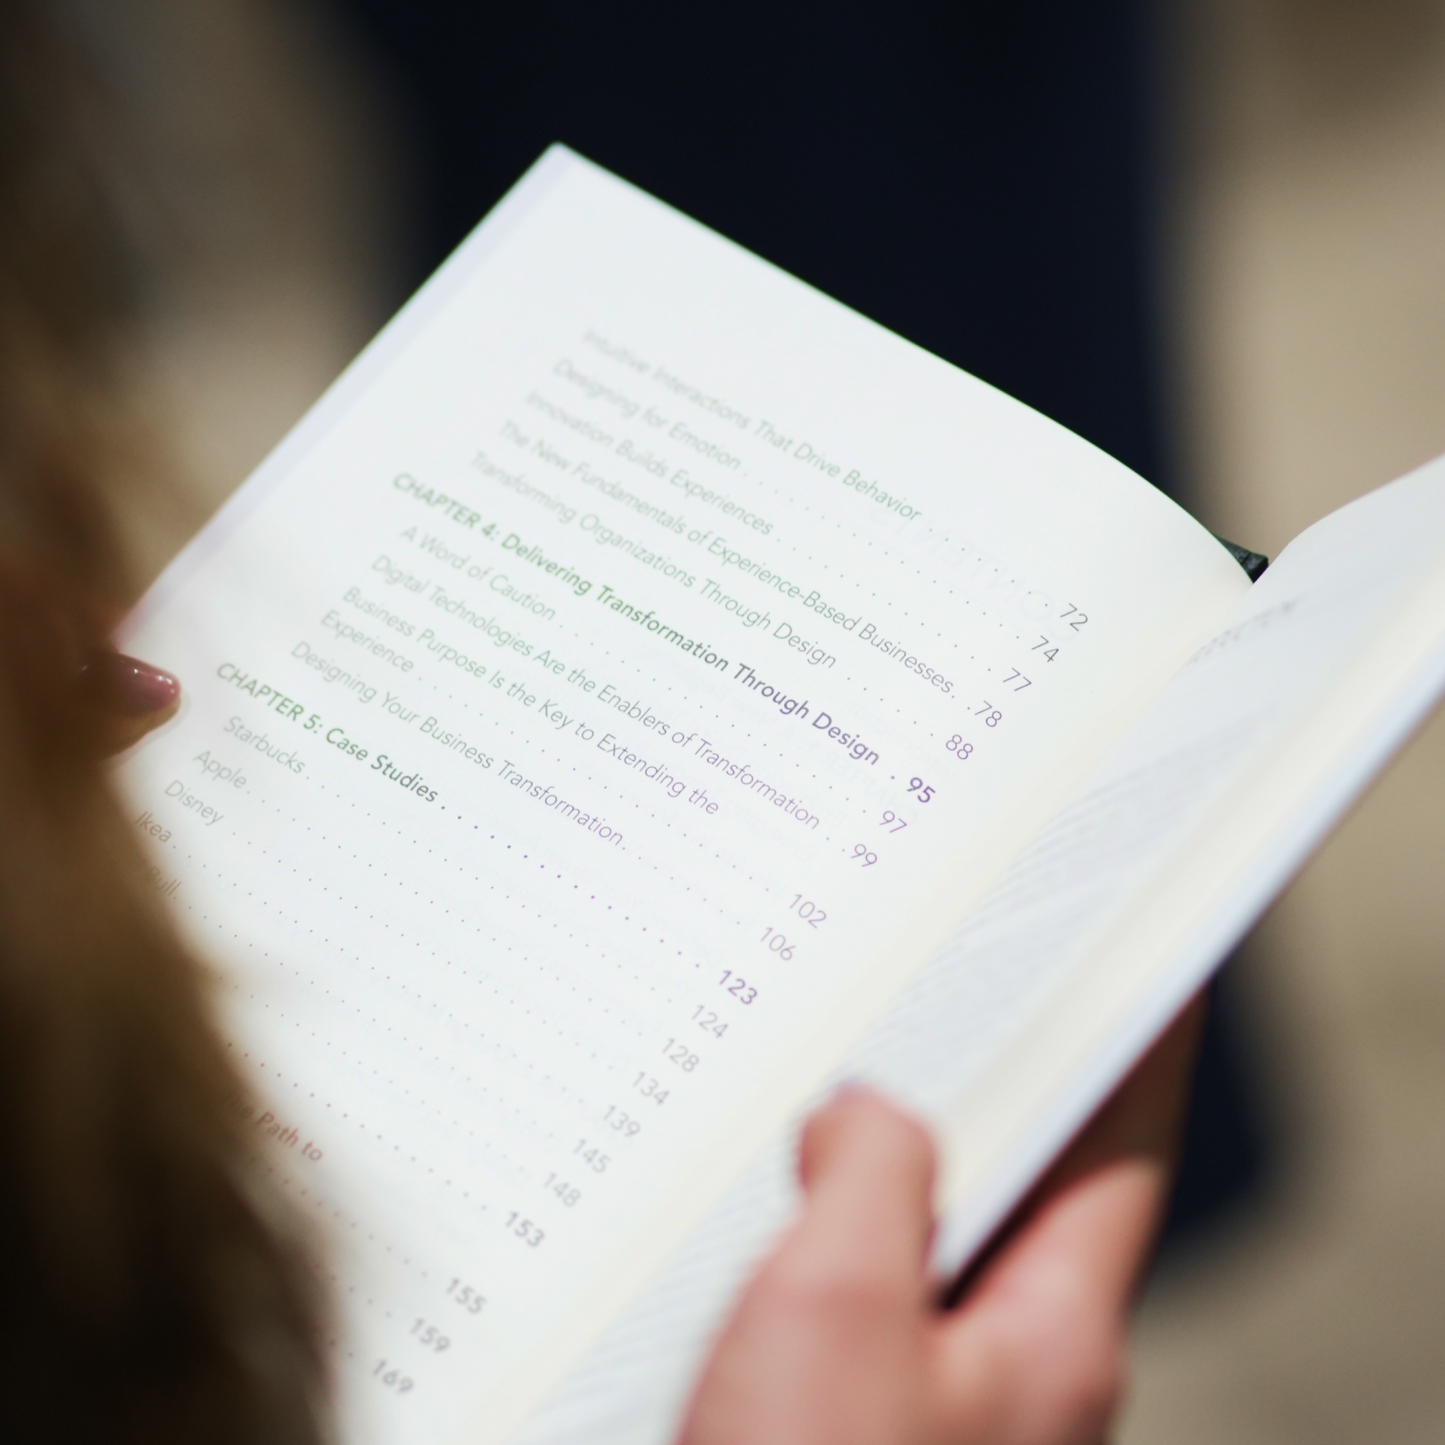 Intuitive Interactions That Drive Behavior . . . . . . . . 72
Designing for Emotion . . . . . . . . . . . . . . . 74
Innovation Builds Experiences . . . . . . . . . . . . 77
The New Fundamentals of Experience-Based Businesses. . 78
Transforming Organizations Through Design . . . . . . 88
CHAPTER 4: Delivering Transformation Through Design . 95
A Word of Caution . . . . . . . . . . . . . . . . 97
Digital Technologies Are the Enablers of Transformation . . 99
Business Purpose Is the Key to Extending the
Experience . . . . . . . . . . . . . . . . . . 102
Designing Your Business Transformation. . . . . . . . 106
CHAPTER 5: Case Studies . . . . . . . . . . . . . . 123
Starbucks . . . . . . . . . . . . . . . . . . . 124
Apple . . . . . . . . . . . . . . . . . . . . . 128
Disney . . . . . . . . . . . . . . . . . . . . . 134
Ikea . . . . . . . . . . . . . . . . . . . . . . 139
Bull. . . . . . . . . . . . . . . . . . . . . . 145
148
153
The Path to
155
159
169